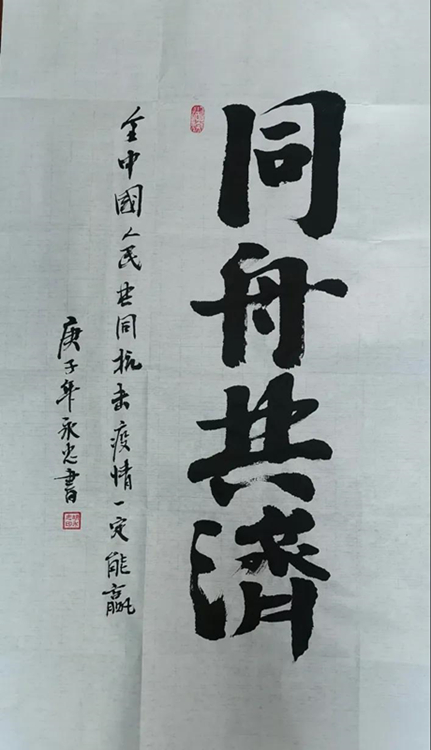 同舟共濟
全中國人民共同抗击疫情一定能贏
庚子年永忠書